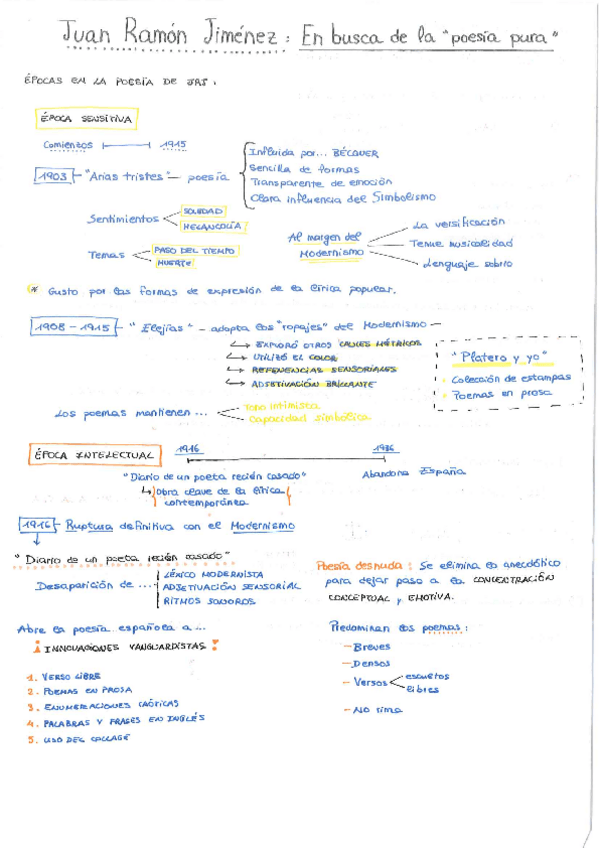 Juan Ramón Jiménez: En busca de la "poesía pura"
ÉPOCAS EN LA POESÍA DE JRJ:
ÉPOCA SENSITIVA
Comienzos 1915
1903 - "Arias tristes" - poesía
Influida por... BÉCQUER
Sencilla de formas
Transparente de emoción
Clara influencia del Simbolismo
Sentimientos
SOLEDAD
MELANCOLÍA
Temas
PASO DEL TIEMPO
MUERTE
Al margen del Modernismo
La versificación
Tenue musicalidad
Lenguaje sobrio
* Gusto por las formas de expresión de la lírica popular.
1908 - 1915 - "Elejías" - adopta los "ropajes" del Modernismo -
EXPLORÓ OTROS CAUCES MÉTRICOS
UTILIZÓ EL COLOR
REFERENCIAS SENSORIALES
ADJETIVACIÓN BRILLANTE
"Platero y yo"
Colección de estampas
Poemas en prosa
Los poemas mantienen ...
Tono intimista
Capacidad simbólica
ÉPOCA INTELECTUAL
1916 1936
"Diario de un poeta recién casado" Abandona España
Obra clave de la lírica
contemporánea
1916 - Ruptura definitiva con el Modernismo
"Diario de un poeta recién casado"
Desaparición de ...
LÉXICO MODERNISTA
ADJETIVACIÓN SENSORIAL
RITMOS SONOROS
Poesía desnuda: Se elimina lo anecdótico
para dejar paso a la CONCENTRACIÓN
CONCEPTUAL y EMOTIVA.
Abre la poesía española a ...
¡INNOVACIONES VANGUARDISTAS!
1. VERSO LIBRE
2. POEMAS EN PROSA
3. ENUMERACIONES CAÓTICAS
4. PALABRAS Y FRASES EN INGLÉS
5. USO DEL COLLAGE
Predominan los poemas:
- Breves
- Densos
- Versos
escuetos
libres
- No rima